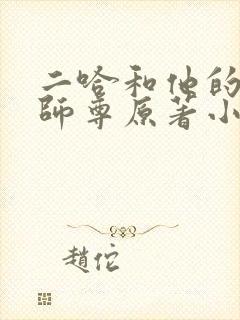 二哈和他的
師尊原著小
趙佗